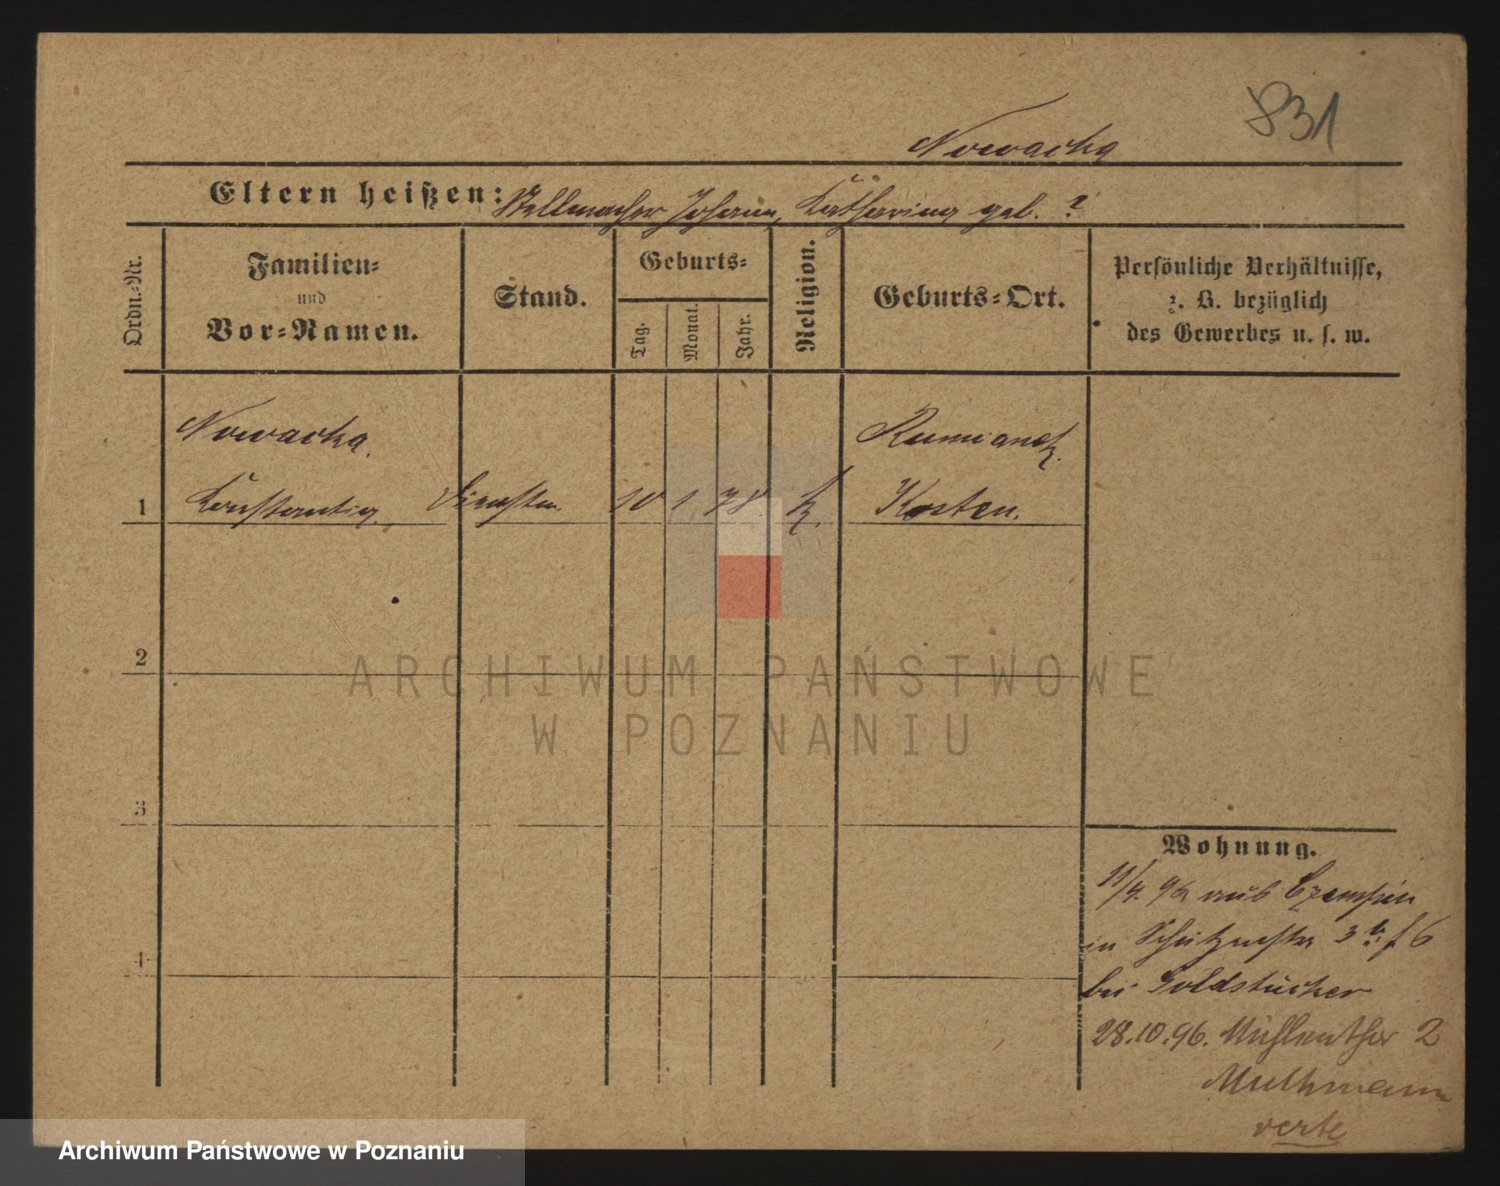 831
Nowacka
Eltern heißen: Stellmacher Johann, Katharina geb. ?
Ordn.-Nr.
Familien-
und
Vor-Namen.
Stand.
Geburts-
Tag.
Monat.
Jahr.
Religion.
Geburts-Ort.
Persönliche Verhältnisse,
z. B. bezüglich
des Gewerbes u. s. w.
Nowacka
Rumianek.
1 Constantia Dienstm. 10 1 78. k. Kosten.
2
3
4
ARCHIWUM PAŃSTWOWE
W POZNANIU
Wohnung.
11/4. 96 aus Czempin
in Schützenstr 3 b. f 6
bei Goldstücker
28.10.96. Mühlenthor 2
Muthmann
verte
Archiwum Państwowe w Poznaniu